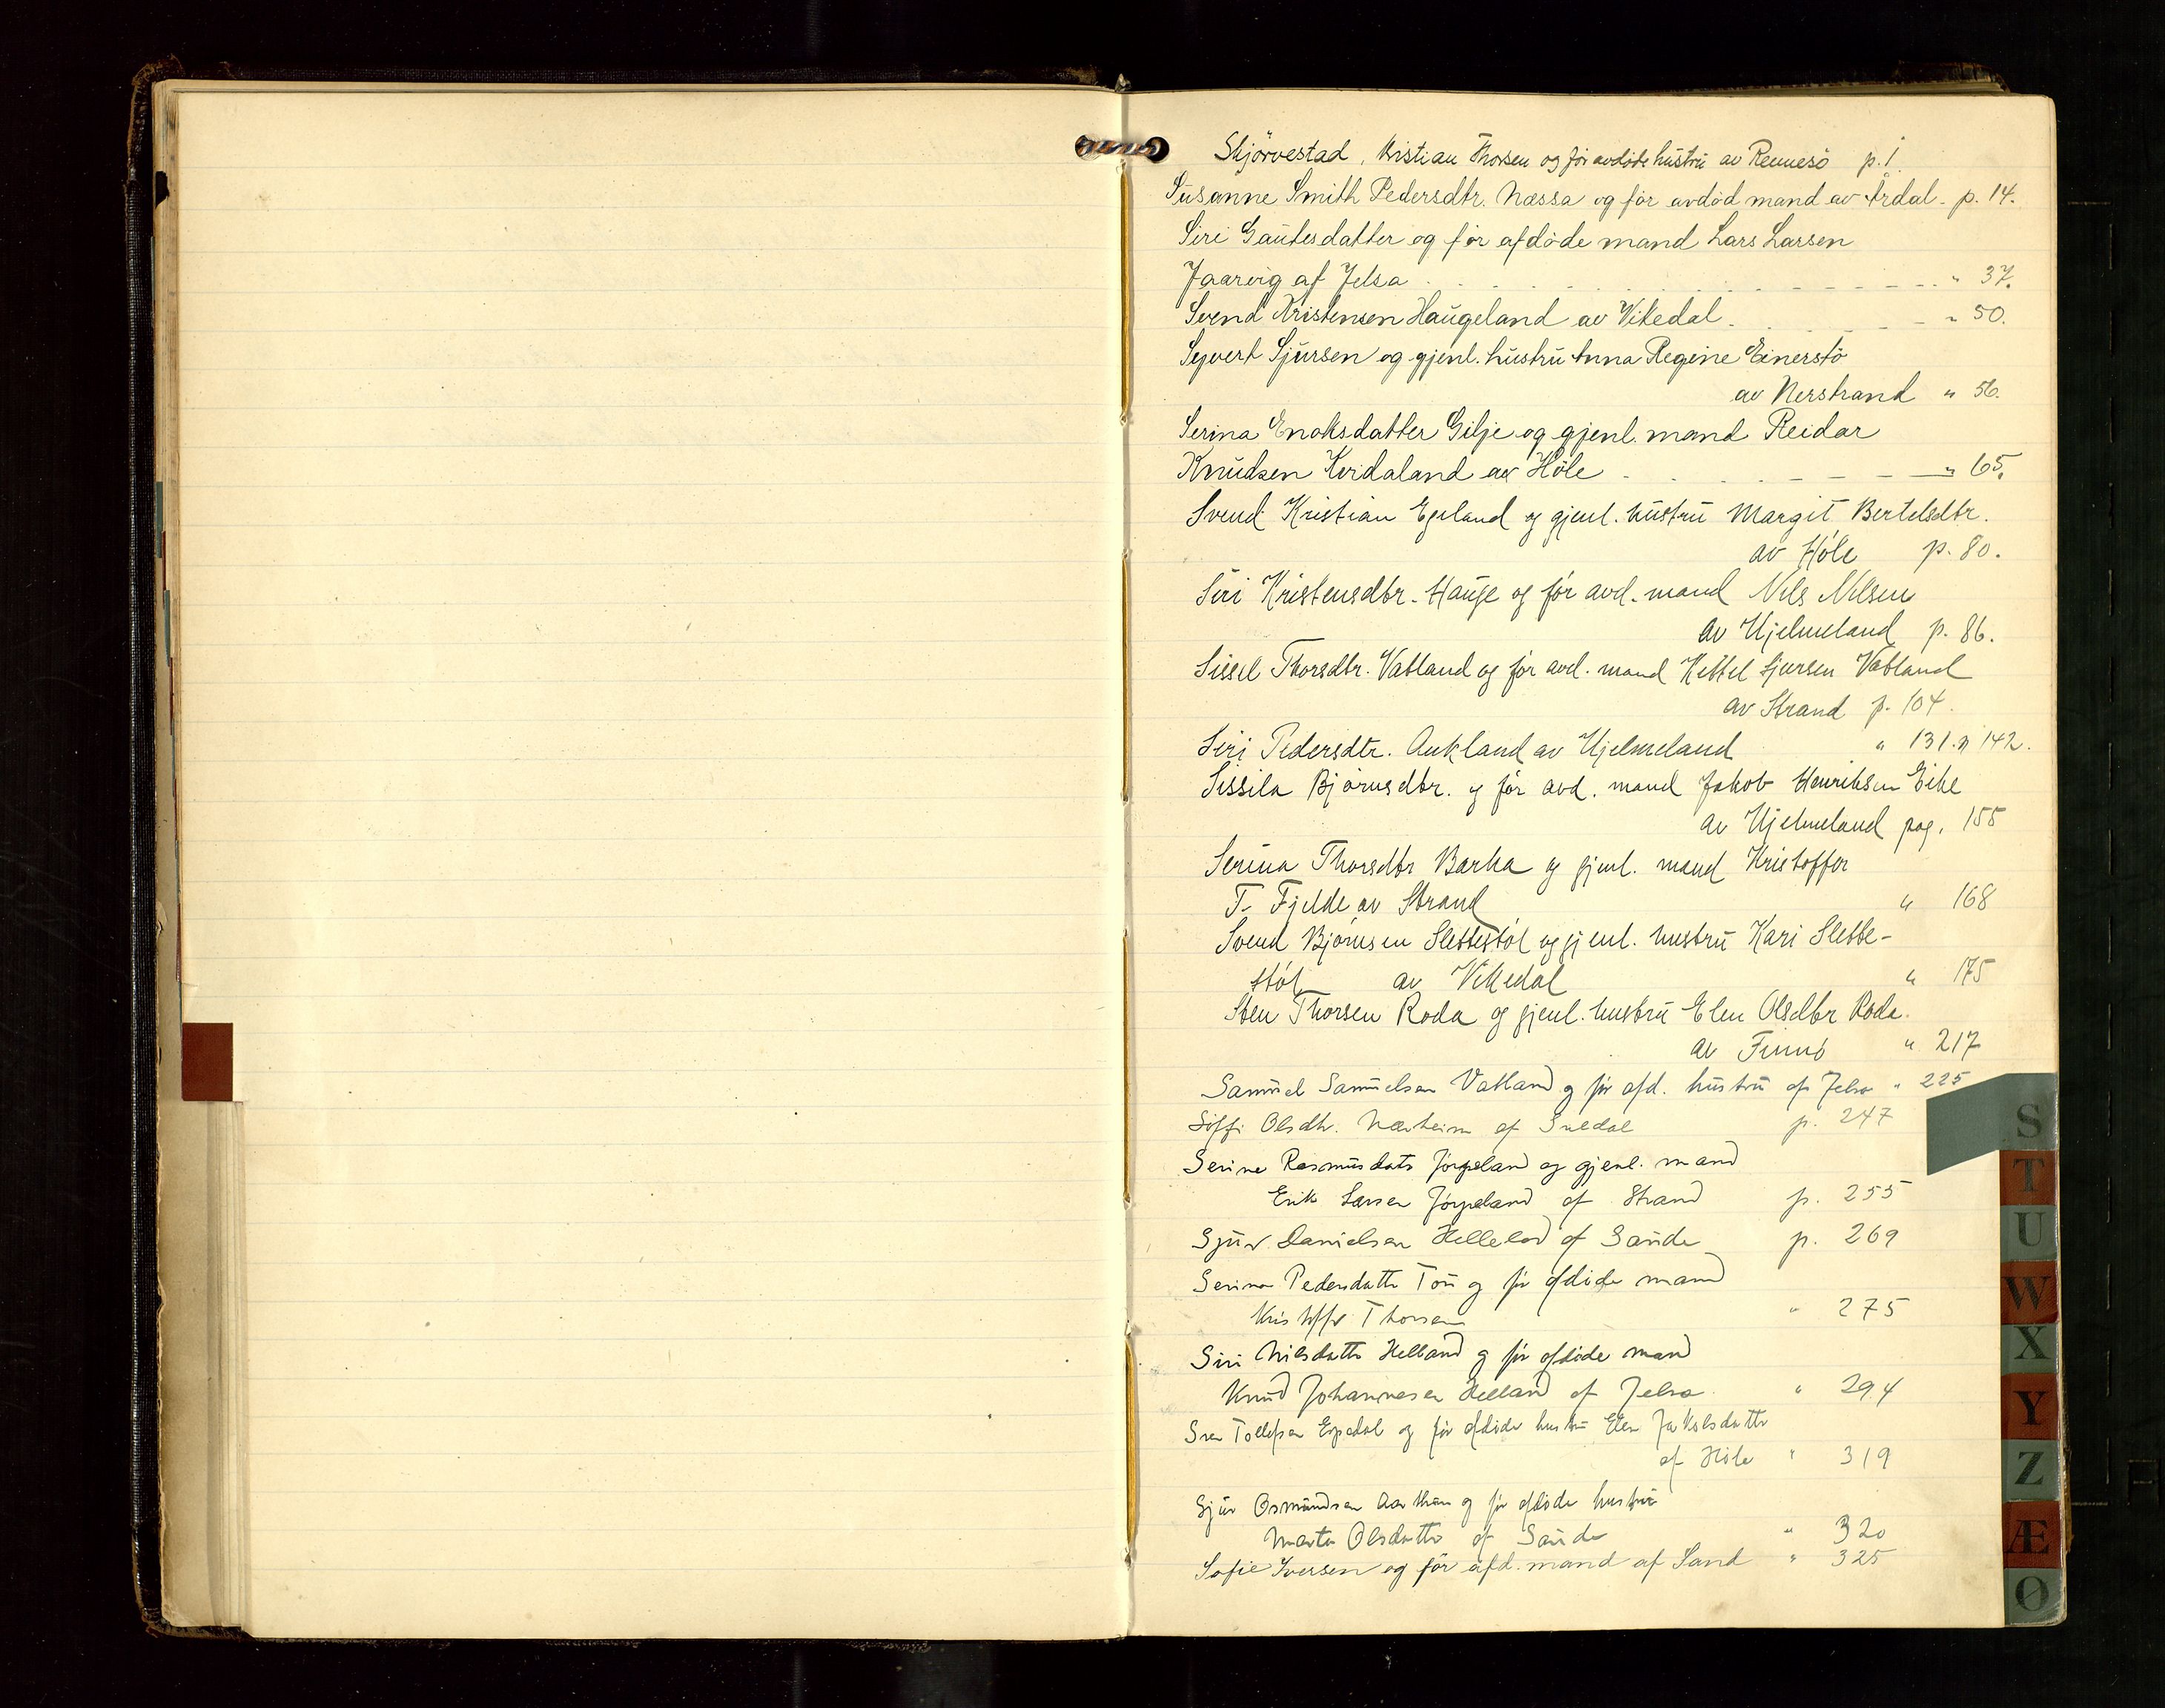 Skjörvestad, Kristian Thorsen og för avdöde hustru av Rennesö p. 1.
Susanne Smith Pedersdtr. Næssa og för avdöd mand av Årdal. p. 14.
Siri Gautesdatter og för afdöde mand Lars Larsen
Jaarvig af Jelsa " 37.
Svend Kristensen Haugeland av Vikedal. " 50.
Syvert Sjursen og gjenl. hustru Anna Regine Einerstö
av Nerstrand " 56.
Serina Enoksdatter Gilje og gjenl. mand Reidar
Knudsen Kvidaland av Höle " 65.
Svend Kristian Egeland og gjenl. hustru Margit Bertelsdtr.
av Höle p. 80.
Siri Kristensdtr. Hauge og för avd. mand Nils Nilsen
av Hjelmeland p. 86.
Sissel Thorsdtr. Vatland og för avd. mand Kettel Sjursen Vatland
av Strand p. 104.
Siri Pedersdtr. Aukland av Hjelmeland " 131. og 142.
Sissila Björnsdtr. og för avd. mand Jakob Henriksen Eike
av Hjelmeland pag. 155
Serina Thorsdtr Barka og gjenl. mand Kristoffer
T. Fjelde av Strand " 168
Svend Björnsen Slettestöl og gjenl. hustru Kari Slette-
stöl av Vikedal " 175
Sten Thorsen Roda og gjenl. hustru Elen Olsdtr Roda.
av Finnö " 217
Samuel Samuelsen Vatland og för afd. hustru af Jelsa " 225
Siffi Olsdtr. Nærheim af Suldal p. 247
Serine Rasmusdatr Jörpeland og gjenl. mand
Erik Larsen Jörpeland af Strand p. 255
Sjur Danielsen Helleland af Saude p. 269
Serina Pedersdattr Tou og för afdöde mand
Kristoffer Thorsen " 275
Siri Nilsdattr Helland og för afdöde mand
Knud Johannesen Helland af Jelsa. " 294
Sven Tollefsen Espedal og för afdöde hustru Elen Jakobsdattr
af Höle " 319
Sjur Osmundsen Aarthun og för afdöde hustru
Marta Olsdattr af Saude " 320
Sofie Iversen og för afd. mand af Sand " 325
S
T
U
W
X
Y
Z
Æ
Ø